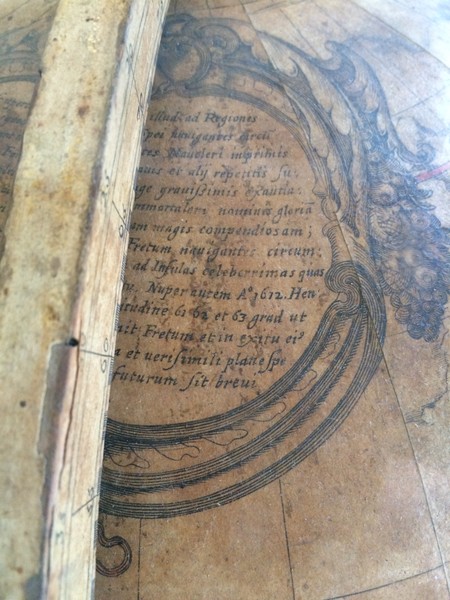 illud ad Regiones
spei navigantes circū
ces Naucleri inprimis
nuis et alij repertis su
age gravissimis exantla
mmortalem nominis gloria
am magis compendiosam ;
; Fretum navigantes circum
ad Insulas celeberrimas quas
Nuper autem Aº 1612. Hen
tudine, 61 62 et 63 grad ut
nit Fretum et in exitu ei⁹
a et verisimili plane spe
futurum sit brevi